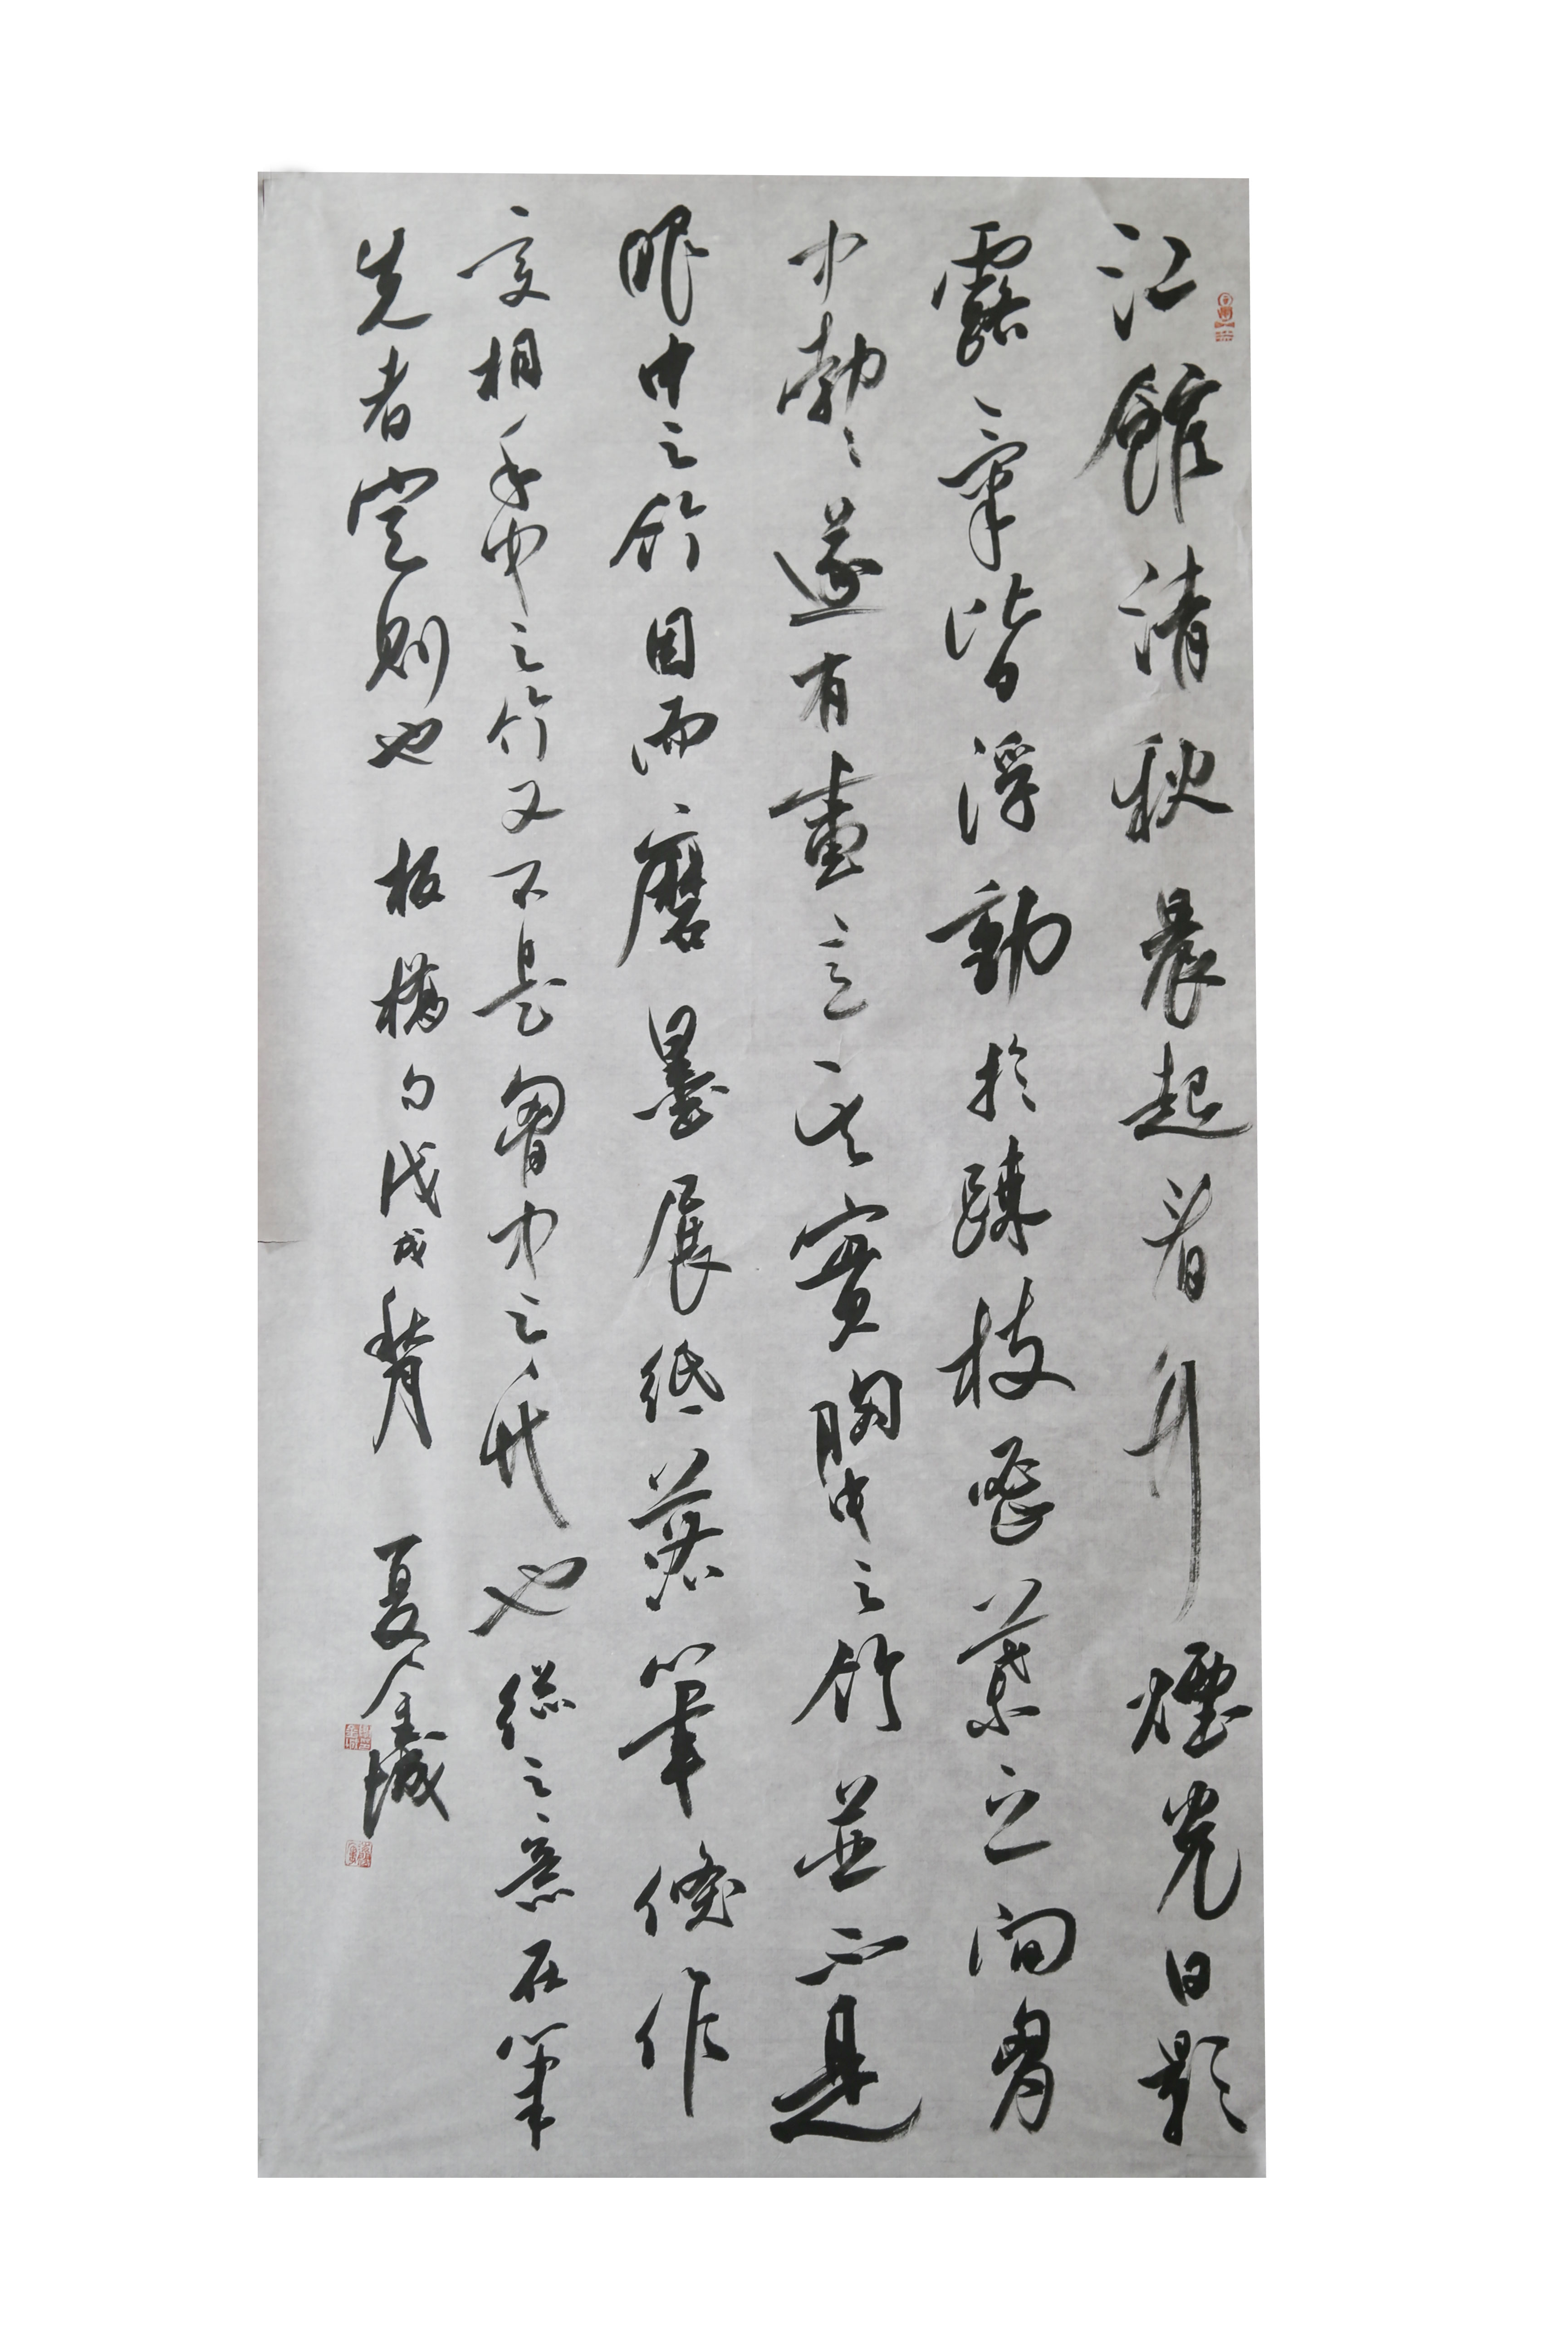 江館清秋晨起看竹煙光日影
露氣皆浮動於疎枝密葉之間胷
中勃々遂有畫意其實胸中之竹並不是
眼中之竹因而磨墨展紙落筆倏作
變相手中之竹又不是胷中之竹也總之意在筆
先者定則也 板橋句戊戌 夏金城